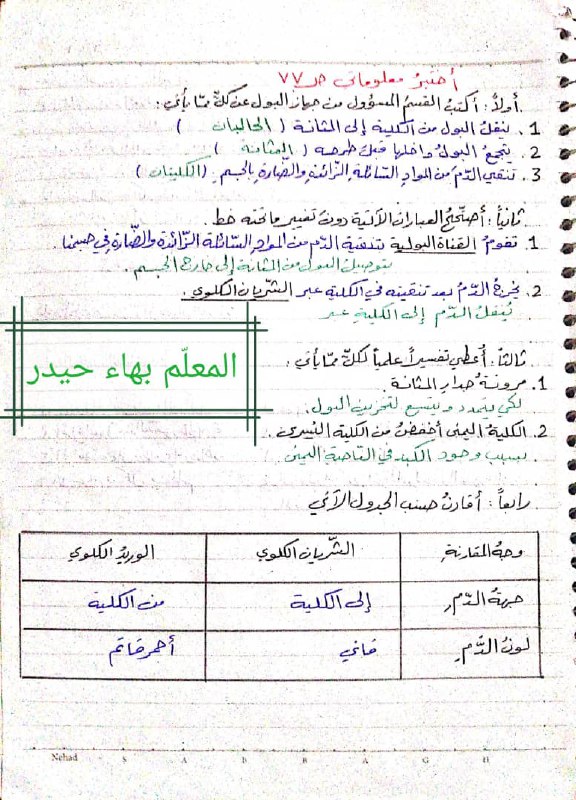 أختبرُ معلوماتي صـ ٧٧
أولاً: أكتبُ القسمَ المسؤول من جهاز البول عن كلّ ممّا يأتي:
1. ينقلُ البول من الكلية إلى المثانة ( الحالبان )
2. يتجمع البولُ داخلها قبل طرحه ( المثانة )
3. تنقي الدّم من المواد السّائلة الزّائدة والضّارة بالجسم. (الكليتان)
ثانياً: أصحّحُ العبارات الآتية دونَ تغيير ما تحته خط.
1. تقومُ القناة البولية بتنقية الدّم من المواد السّائلة الزّائدة والضّارة في جسمنا.
بتوصيل البول من المثانة إلى خارج الجسم.
2. يخرجُ الدّمُ بعد تنقيته في الكلية عبر الشّريان الكلوي.
ينقلُ الدّم إلى الكلية عبر
المعلّم بهاء حيدر
ثالثاً: أعطي تفسيراً علمياً لكلّ ممّا يأتي:
1. مرونة جدار المثانة.
لكي يتمدد و يتسع لتخزين البول.
2. الكلية اليمنى أخفضُ من الكلية اليسرى.
بسبب وجود الكبد في الناحية اليمنى
رابعاً: أقارنُ حسب الجدول الآتي
وجهُ المقارنةِ الشّريان الكلوي الوريدُ الكلوي
جهةُ الدّمِ إلى الكلية من الكلية
لونُ الدّمِ قاني أحمر قاتم
Nehad S A B B A G H